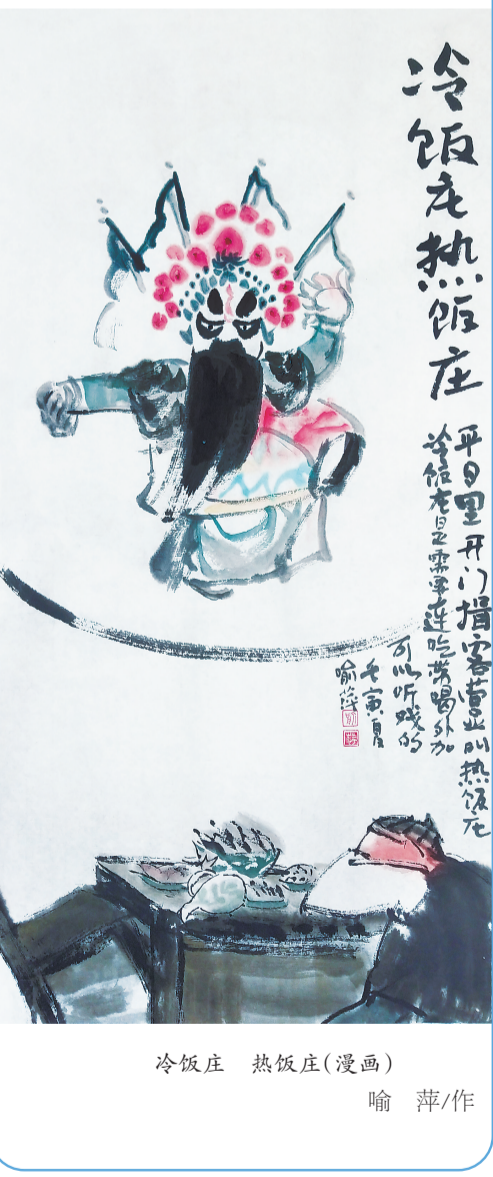 冷饭庄热饭庄
平日里开门揖客营业叫热饭庄
冷饭庄是需要连吃带喝外加
可以听戏的
壬寅夏
喻萍
冷饭庄　热饭庄(漫画)
喻　萍/作